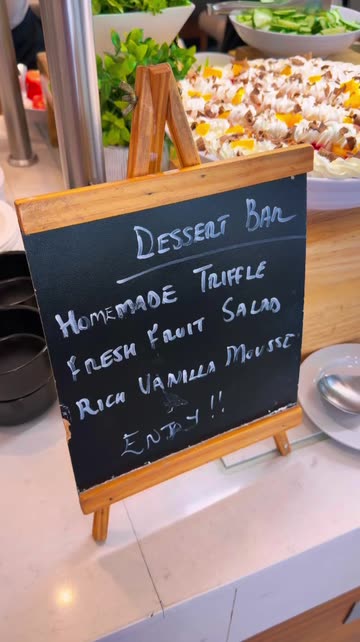 DESSERT BAR
HOMEMADE TRIFFLE
FRESH FRUIT SALAD
RICH VANILLA MOUSSE
ENJOY!!